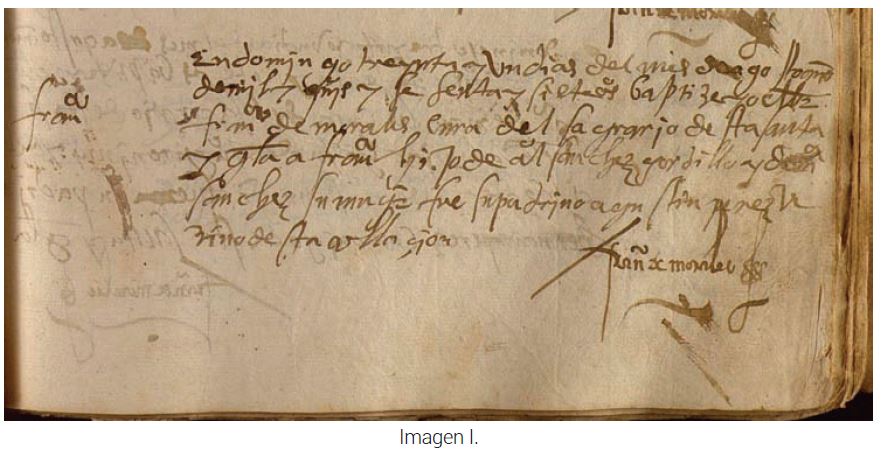 franco
En domingo treynta y un dias del mes de agosto año
de mil y quis y sesenta y siete aos baptize yo el br
franco de morales cura del sagrario de sta santa
yglia a franco hijo de al sanchez gordillo y de
sanchez su muger fue su padrino agustin perez ve
zino de sta collaçion
franco de morales
Imagen I.